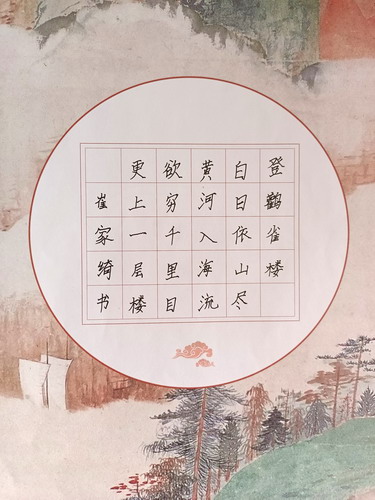 登鹳雀楼
白日依山尽
黄河入海流
欲穷千里目
更上一层楼
崔家绮书